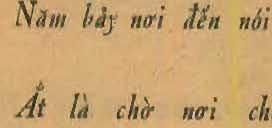 Năm bảy nơi đến nói
Ắt là chờ nơi ch